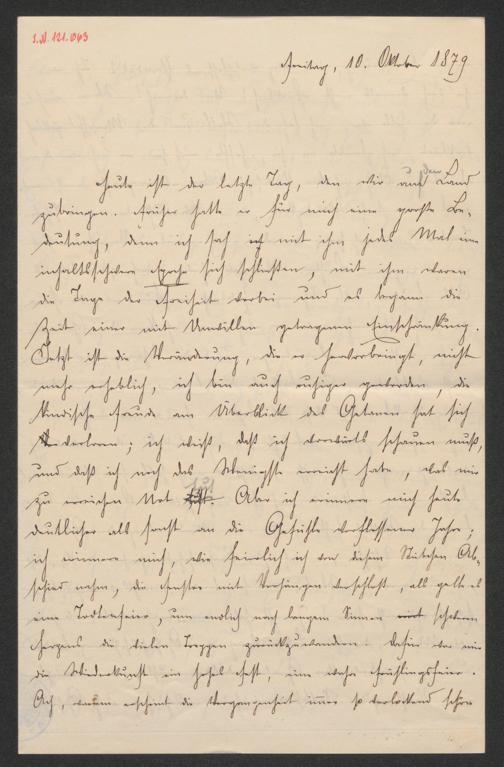 I.N. 121.063
Freitag, 10. Oktober 1879
Heute ist der letzte Tag, den wir auf dem Land
zubringen. Früher hatte er für mich eine große Be-
deutung, denn ich sah mit ihm jedes Mal eine
inhaltsschwere Epoche sich schließen, mit ihm waren
die Tage der Freiheit vorbei und es begann die
Zeit einer mit Unwillen getragenen Einschränkung.
Jetzt ist die Veränderung, die er hervorbringt, nicht
mehr erheblich, ich bin auch ruhiger geworden, die
kindische Freude am Überblick des Getanen hat sich
verloren; ich weiß, daß ich vorwärts schauen muß,
und daß ich noch das Wenigste erreicht habe, was mir
zu erreichen Not tut. Aber ich erinnere mich heute
deutlicher als sonst an die Gefühle verflossener Jahre;
ich erinnere mich, wie feierlich ich von diesem Stübchen Ab-
schied nahm, die Fenster mit Vorhängen verschloß, als gelte es
eine Todtenfeier, um endlich nach langem Sinnen schweren
Herzens die vielen Treppen zurückzuwandern. Dafür war mir
die Wiederkunft ein hohes Fest, eine wahre Frühlingsfeier.
Ach, warum erscheint die Vergangenheit immer so verlockend schön